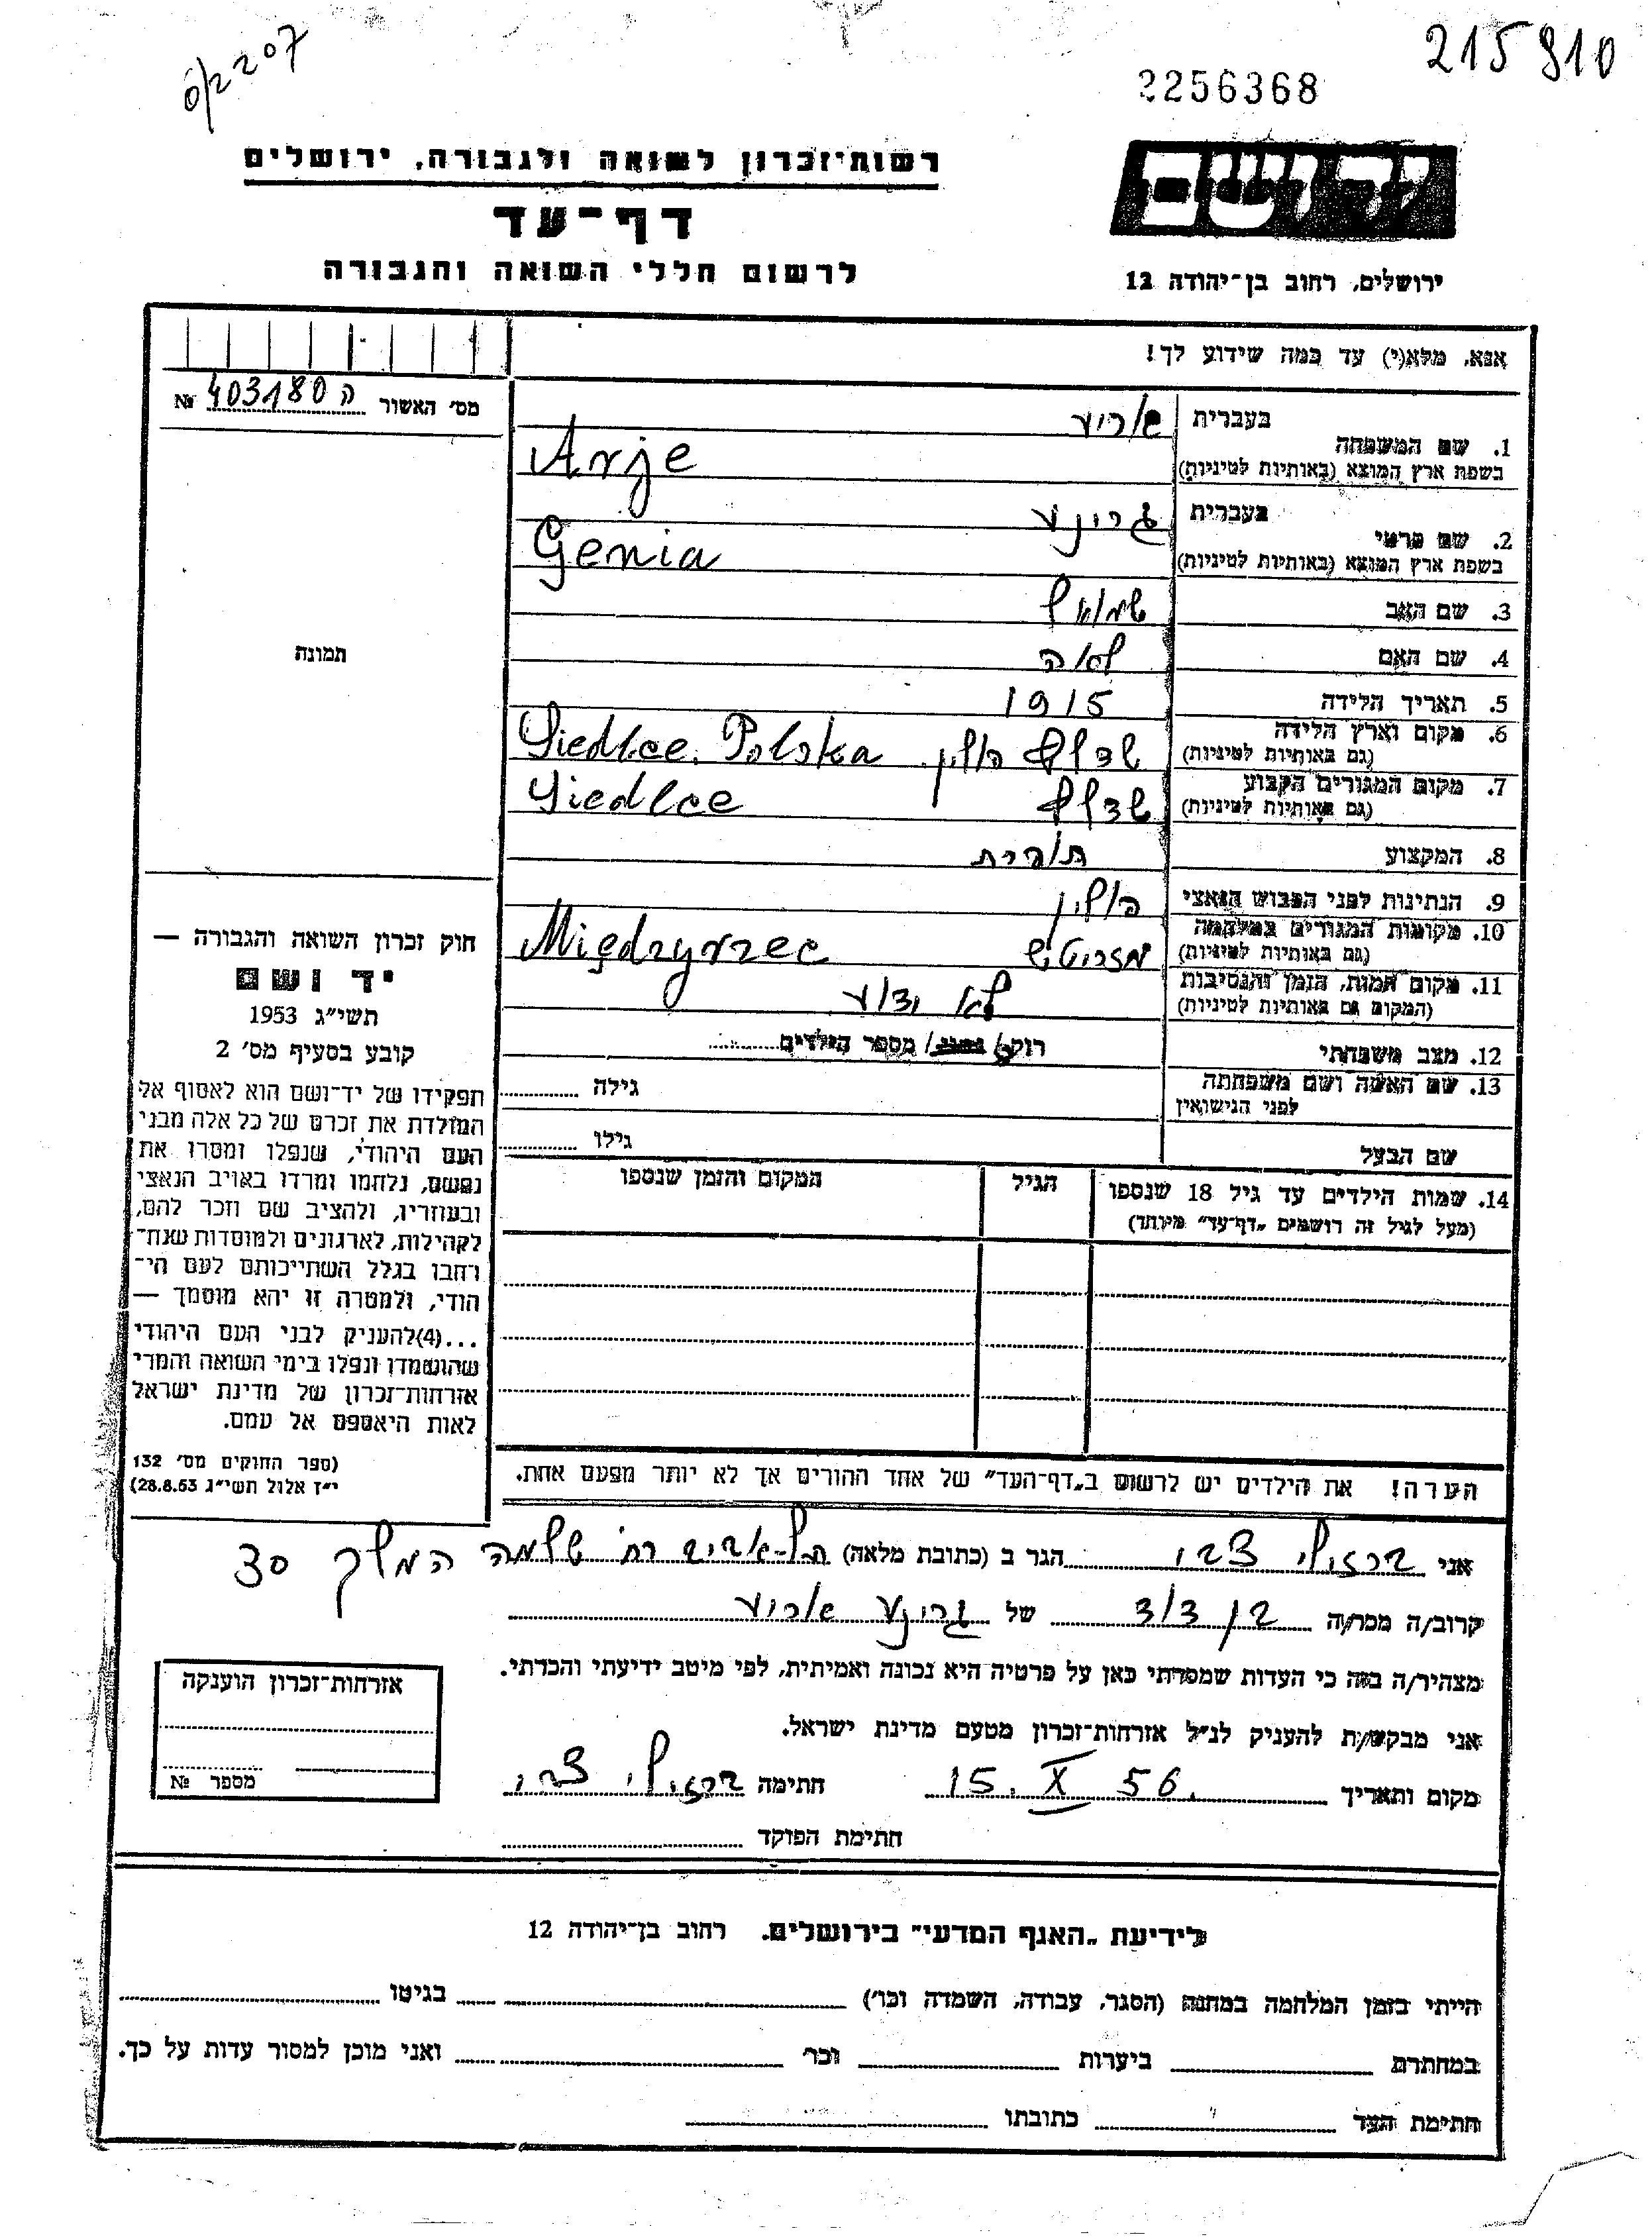 6/2207
215910
2256368
יד ושם
רשות־זכרון לשואה ולגבורה, ירושלים
דף־עד
לרשום חללי השואה והגבורה
ירושלים, רחוב בן־יהודה 12
אנא, מלא(י) עד כמה שידוע לך!
מס׳ האשור ה 403180 №
1. שם המשפחה
בעברית
בשפת ארץ המוצא (באותיות לטיניות)
Arje
2. שם פרטי
בעברית
בשפת ארץ המוצא (באותיות לטיניות)
Genia
3. שם האב שמואל
4. שם האם לאה
5. תאריך הלידה 1915
6. מקום וארץ הלידה
(גם באותיות לטיניות)
פולין. Siedlce. Polska
7. מקום המגורים הקבוע
(גם באותיות לטיניות)
Siedlce
8. המקצוע תופרת
9. הנתינות לפני הכבוש הנאצי פולין
10. מקומות המגורים במלחמה
(גם באותיות לטיניות)
Międzyrzec
11. מקום המות, הזמן והנסיבות
(המקום גם באותיות לטיניות)
לא ידוע
12. מצב משפחתי
רוק/ה / נשוי / מספר הילדים
13. שם האשה ושם משפחתה
לפני הנישואין
גילה
שם הבעל
גילו
14. שמות הילדים עד גיל 18 שנספו
(מעל לגיל זה רושמים „דף־עד״ מיוחד)
הגיל
המקום והזמן שנספו
הערה! את הילדים יש לרשום ב„דף־העד״ של אחד ההורים אך לא יותר מפעם אחת.
תמונה
חוק זכרון השואה והגבורה —
יד ושם
תשי״ג 1953
קובע בסעיף מס׳ 2
תפקידו של יד־ושם הוא לאסוף אל
המולדת את זכרם של כל אלה מבני
העם היהודי, שנפלו ומסרו את
נפשם, נלחמו ומרדו באויב הנאצי
ובעוזריו, ולהציב שם וזכר להם,
לקהילות, לארגונים ולמוסדות שנח־
רבו בגלל השתייכותם לעם הי־
הודי, ולמטרה זו יהא מוסמך —
...(4)להעניק לבני העם היהודי
שהושמדו ונפלו בימי השואה והמרי
אזרחות־זכרון של מדינת ישראל
לאות היאספם אל עמם.
(ספר החוקים מס׳ 132
י״ז אלול תשי״ג 28.8.53)
אני ברזילי צבי הגר ב (כתובת מלאה) תל-אביב רח׳ שלמה המלך 30
קרוב/ה מכר/ה בן דוד של
מצהיר/ה בזה כי העדות שמסרתי כאן על פרטיה היא נכונה ואמיתית, לפי מיטב ידיעתי והכרתי.
אני מבקש/ת להעניק לנ״ל אזרחות־זכרון מטעם מדינת ישראל.
מקום ותאריך 15. X 56. חתימה ברזילי צבי
חתימת הפוקד
אזרחות־זכרון הוענקה
מספר №
לידיעת „האגף המדעי״ בירושלים, רחוב בן־יהודה 12
הייתי בזמן המלחמה במחנה (הסגר, עבודה, השמדה וכו׳) בגיטו
במחתרת ביערות וכו׳ ואני מוכן למסור עדות על כך.
חתימת העד כתובתו